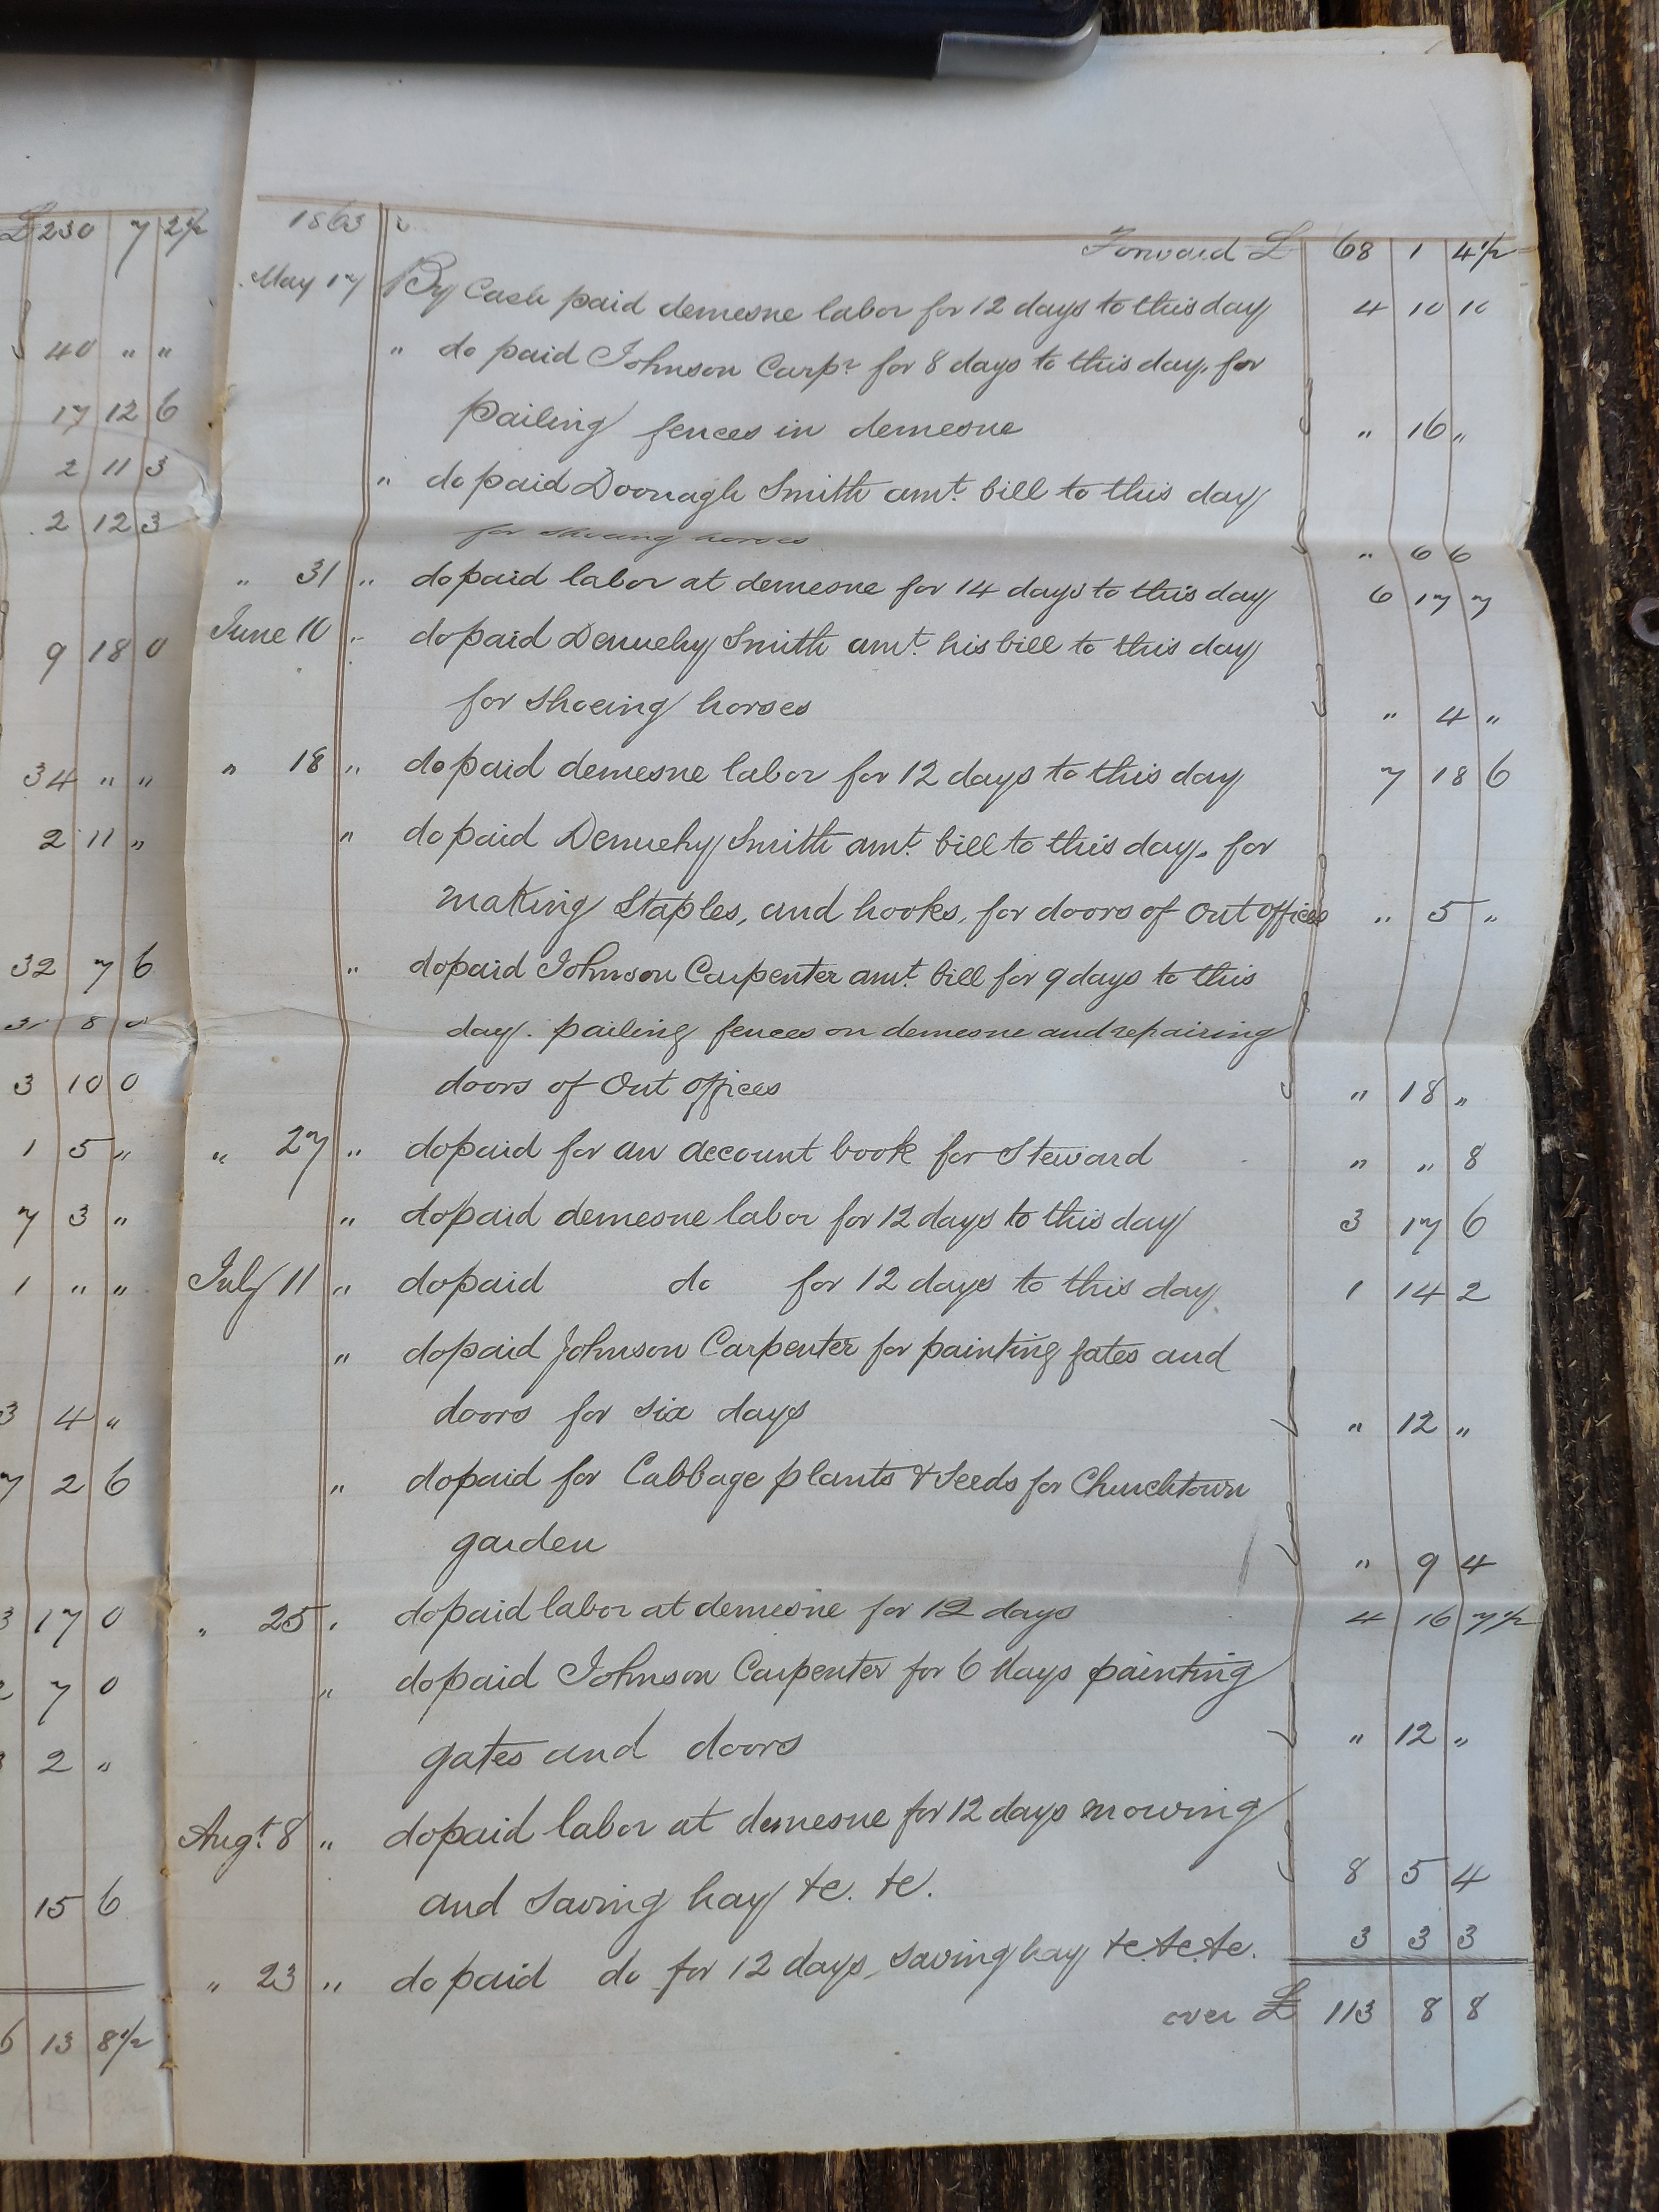 £230 7 2½
40 " "
17 12 6
2 11 3
2 12 3
9 18 0
34 " "
2 11 "
32 7 6
31 8 0
3 10 0
1 5 "
7 3 "
1 " "
3 4 "
7 2 6
3 17 0
7 0
2 "
15 6
6 13 8½
1863 Forward £ 68 1 4½
May 17 By Cash paid demesne labor for 12 days to this day 4 10 10
" do paid Johnson Carpr for 8 days to this day, for
pailing fences in demesne " 16 "
" do paid Doonagh Smith amt. bill to this day
for shoeing horses " 6 6
" 31 " do paid labor at demesne for 14 days to this day 6 17 7
June 10 " do paid Dennehy Smith amt. his bill to this day
for shoeing horses " 4 "
" 18 " do paid demesne labor for 12 days to this day 7 18 6
" do paid Dennehy Smith amt. bill to this day. for
making Staples, and hooks, for doors of Out Offices " 5 "
" do paid Johnson Carpenter amt. bill for 9 days to this
day. pailing fences on demesne and repairing
doors of Out Offices " 18 "
" 27 " do paid for an account book for Steward " " 8
" do paid demesne labor for 12 days to this day 3 17 6
July 11 " do paid do for 12 days to this day 1 14 2
" do paid Johnson Carpenter for painting gates and
doors for six days " 12 "
" do paid for Cabbage plants & Seeds for Churchtown
garden " 9 4
" 25 " do paid labor at demesne for 12 days 4 16 7½
" do paid Johnson Carpenter for 6 days painting
gates and doors " 12 "
Augt. 8 " do paid labor at demesne for 12 days mowing
and saving hay &c. &c. 8 5 4
" 23 " do paid do for 12 days, saving hay &c &c &c. 3 3 3
over £ 113 8 8